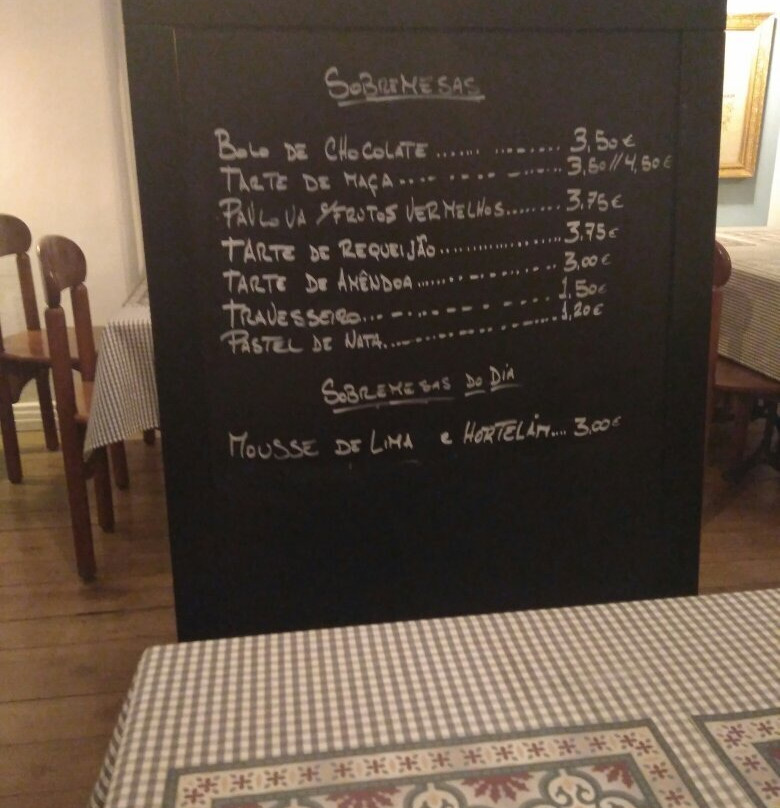 SOBREMESAS
BOLO DE CHOCOLATE ....... ........ 3,50€
TARTE DE MAÇA.... ........ 3,50//4,50€
PAVLOVA C/FRUTOS VERMELHOS........ 3,75€
TARTE DE REQUEIJÃO.................. 3,75€
TARTE DE AMÊNDOA .................. 3,00€
TRAVESSEIRO.................. 1,50€
PASTEL DE NATA.................. 1,20€
SOBREMESAS DO DIA
MOUSSE DE LIMA e HORTELÃM.... 3,00€